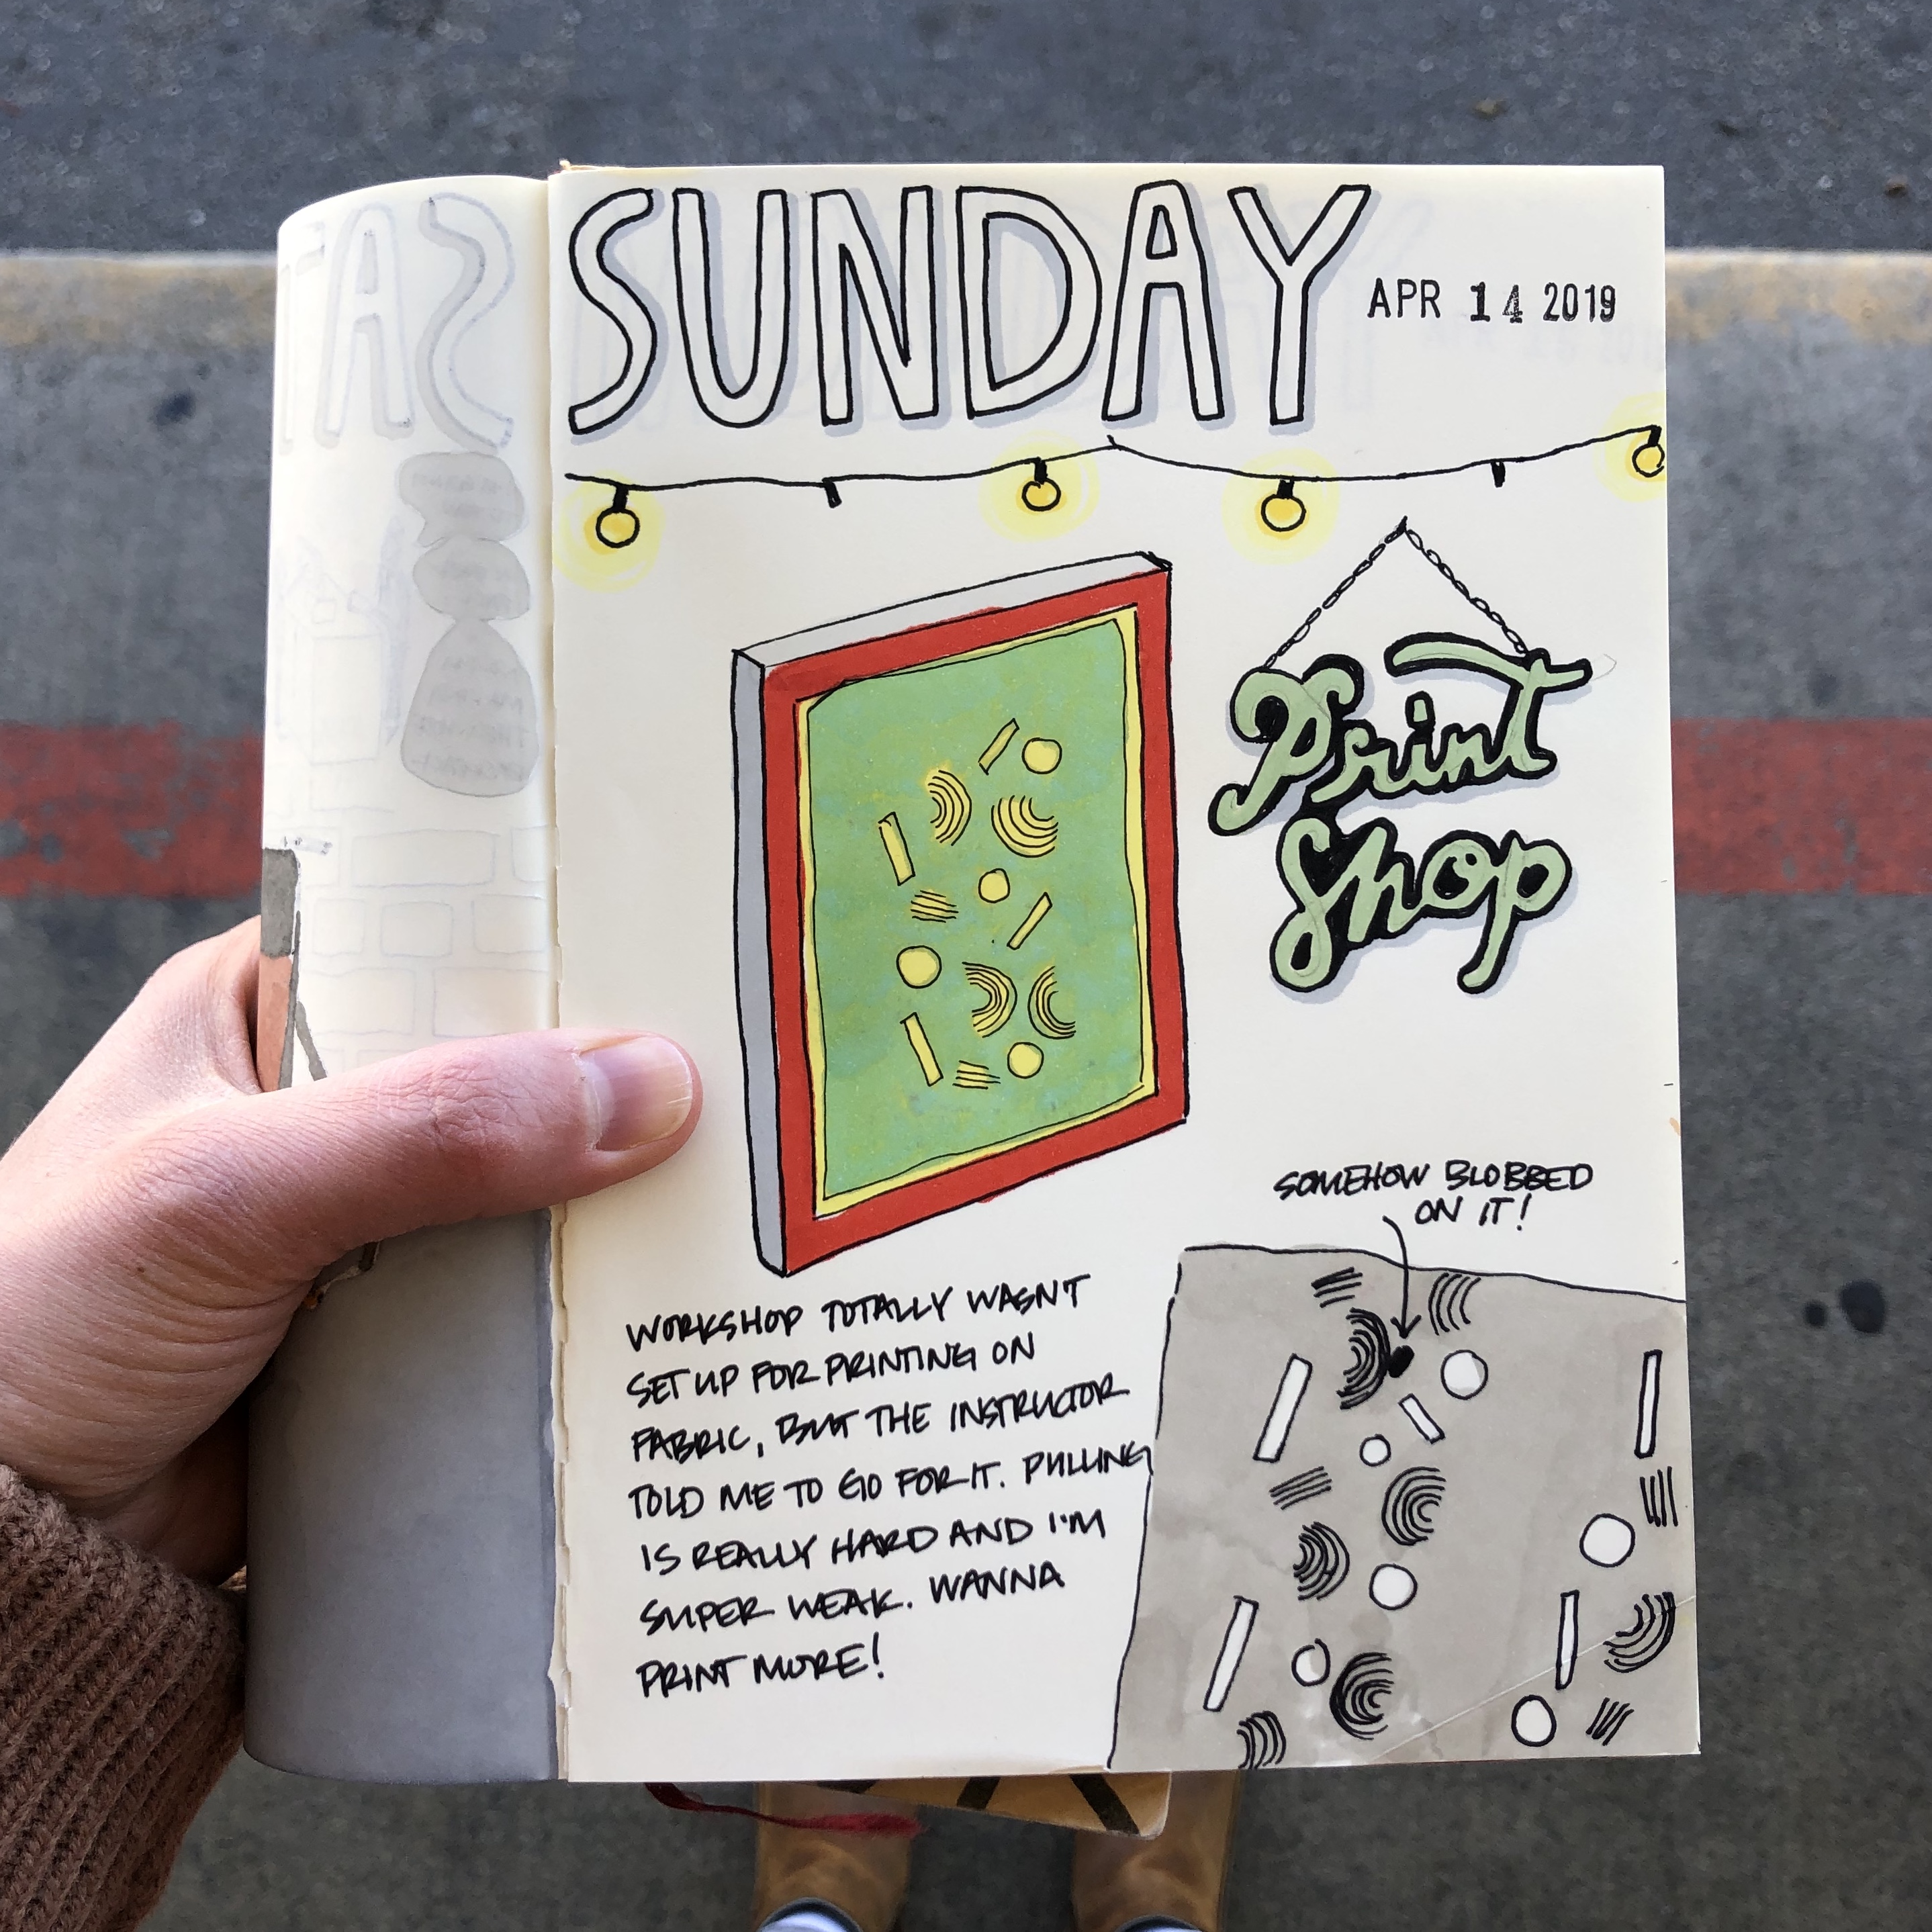 SUNDAY
APR 14 2019
Print
Shop
SOMEHOW BLOBBED
ON IT!
WORKSHOP TOTALLY WASN'T
SET UP FOR PRINTING ON
FABRIC, BUT THE INSTRUCTOR
TOLD ME TO GO FOR IT. PULLING
IS REALLY HARD AND I'M
SUPER WEAK. WANNA
PRINT MORE!